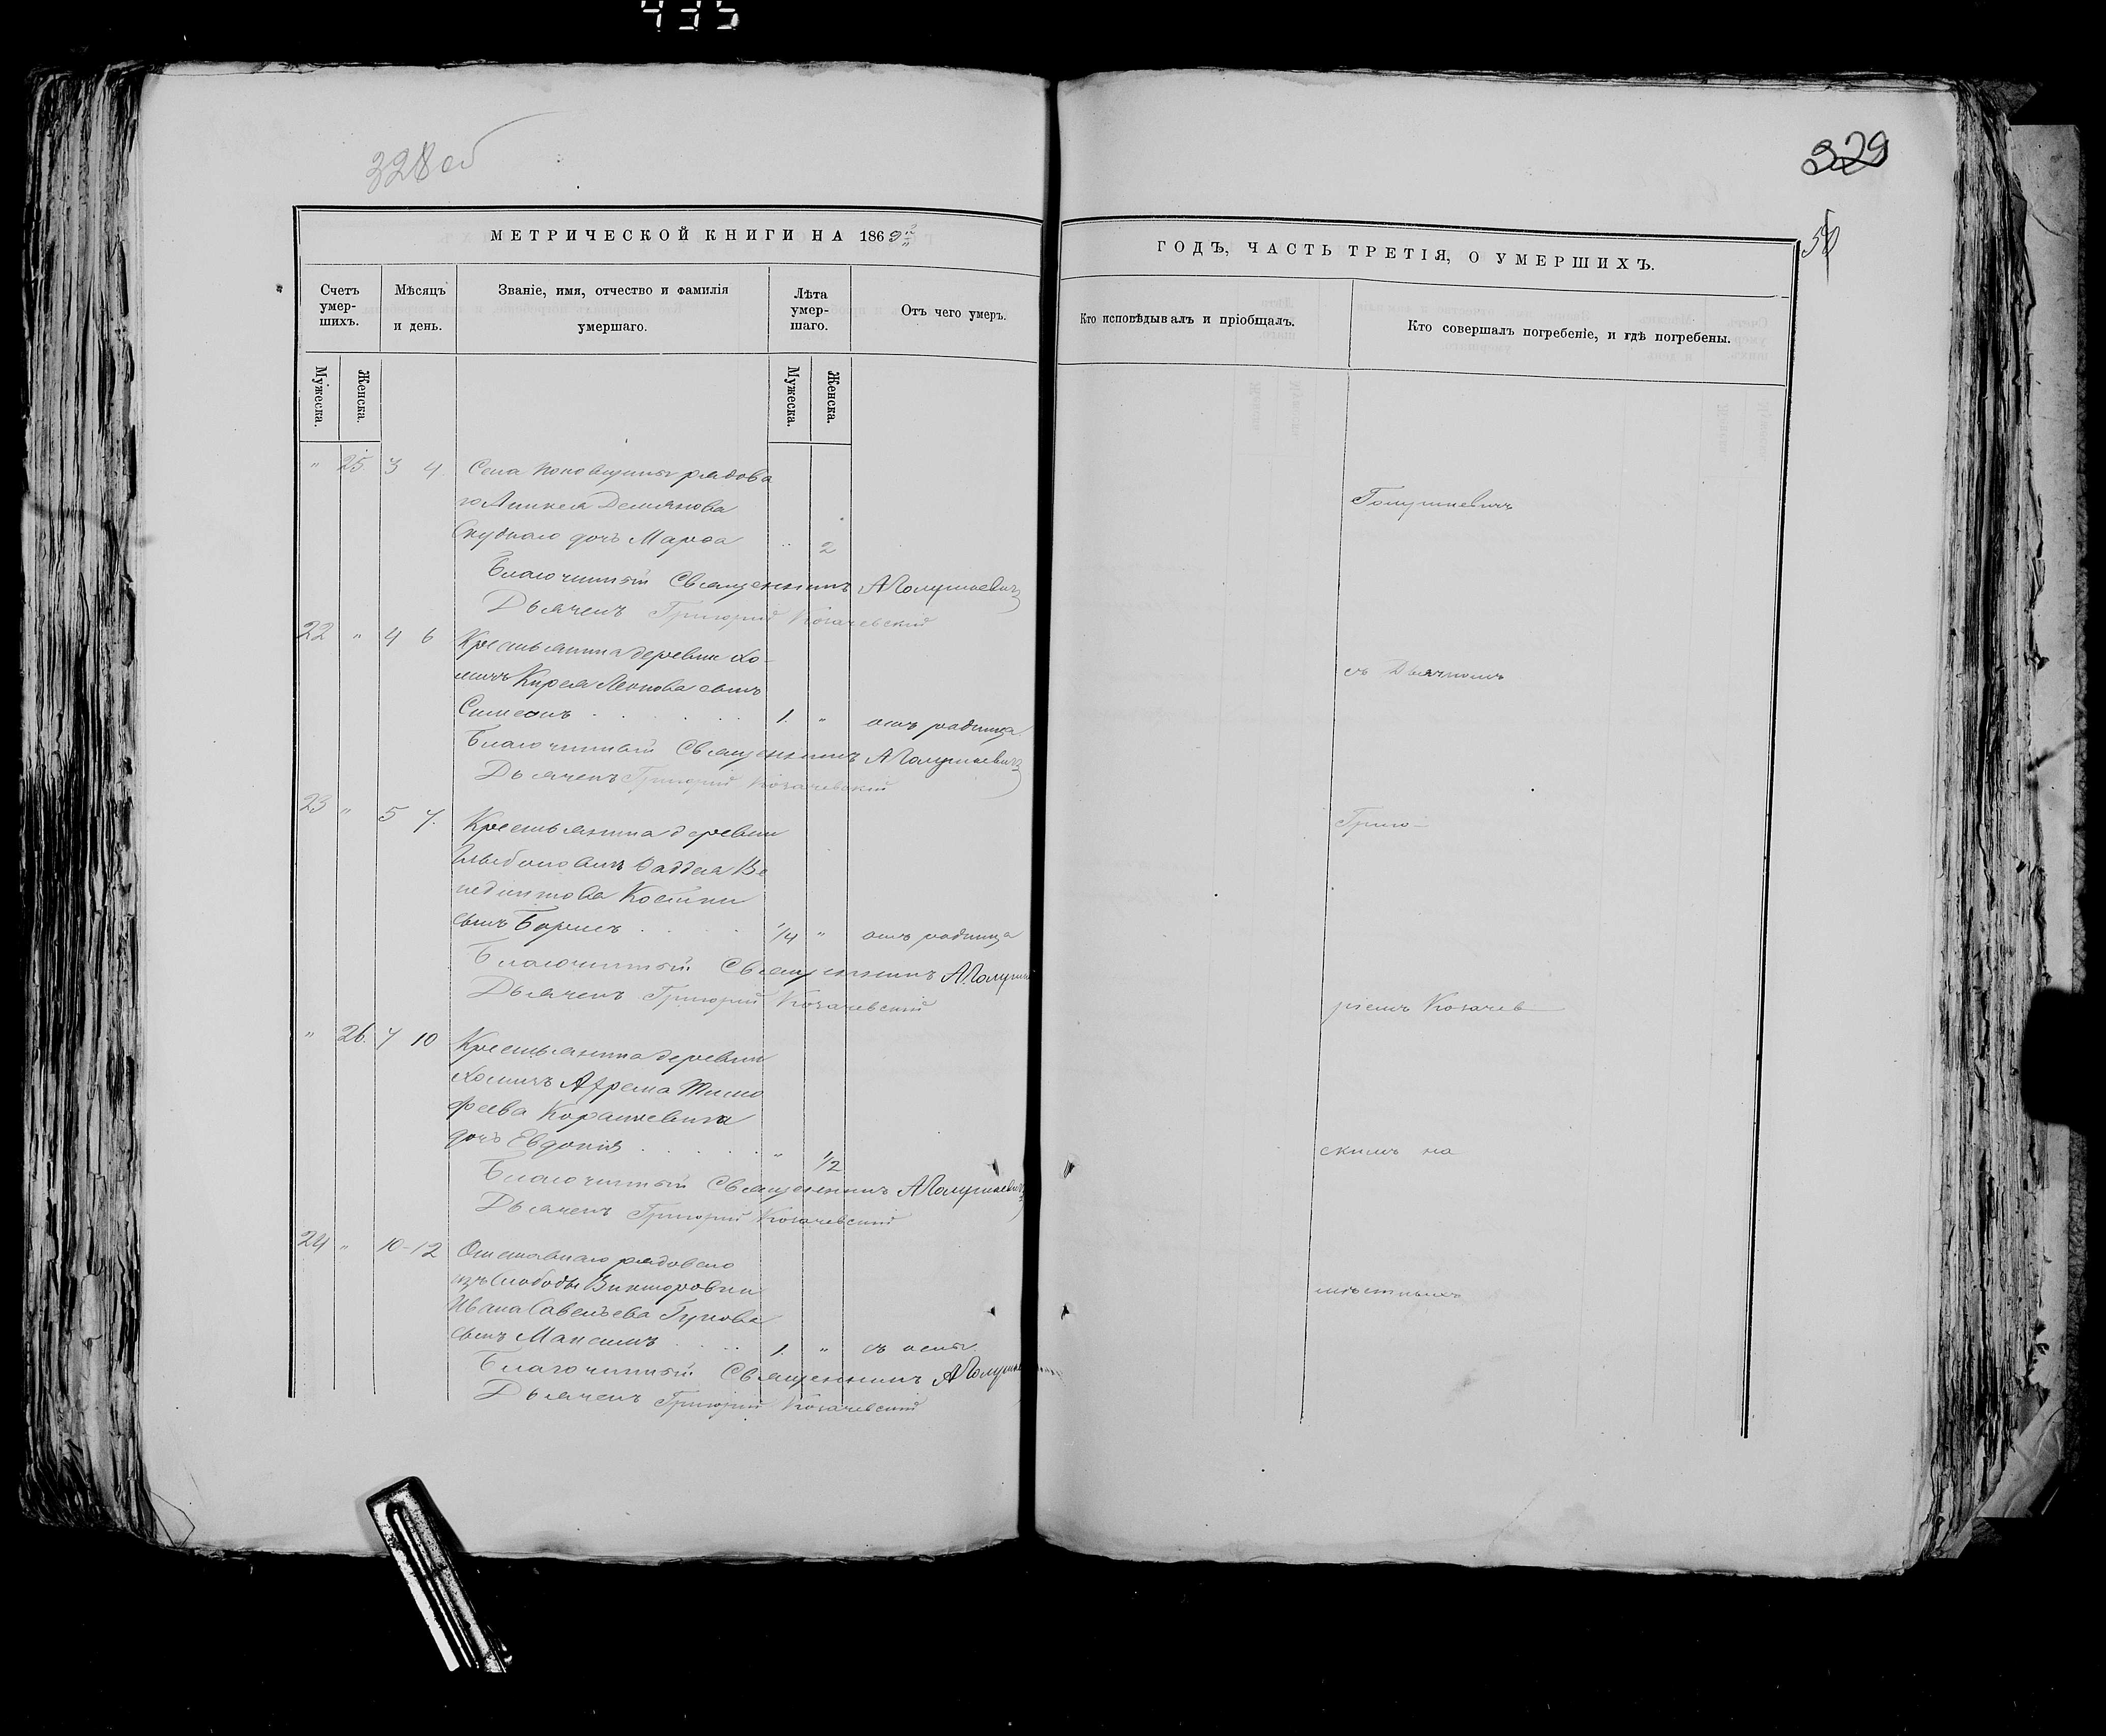 435
328 об
329
МЕТРИЧЕСКОЙ КНИГИ НА 1869й
ГОДЪ, ЧАСТЬ ТРЕТІЯ, О УМЕРШИХЪ.
Счетъ умер-шихъ.
Мѣсяцъ и день.
Званіе, имя, отчество и фамилія умершаго.
Лѣта умер-шаго.
Отъ чего умеръ.
Кто исповѣдывалъ и пріобщалъ.
Кто совершалъ погребеніе, и гдѣ погребены.
Мужеска. Женска.
Мужеска. Женска.
" 25 3 4 Села рядова
го Демьянова
дочь Марѳа " 2
Благочинный Священникъ А Голушкевичъ
Дьячекъ Григорій Козачевскій
22 " 4 6 Крестьянина деревни Хо-
мичъ Кирея Леонова сынъ
Симеонъ 1. " отъ родимца
Благочинный Священникъ А Голушкевичъ
Дьячекъ Григорій Козачевскій
23 " 5 7. Крестьянина деревни
Фаддея Ве
недиктова
сынъ Борисъ 1/4 " отъ родимца
Благочинный Священникъ А. Голушк
Дьячекъ Григорій Козачевскій
" 26. 7 10 Крестьянина деревни
Хомичъ Ахрема Тимо
феева Корашкевича
дочь Евдокія " 1/2
Благочинный Священникъ А Голушкевичъ
Дьячекъ Григорій Козачевскій
24 " 10-12 Отставнаго рядоваго
изъ Слободы Викторовки
Ивана Савельева
сынъ Максимъ 1. " съ оспы.
Благочинный Священникъ А Голушкевичъ
Дьячекъ Григорій Козачевскій
Голушкевичъ
съ Дьячкомъ
Григо-
ріемъ Козачев
скимъ на
мѣстныхъ